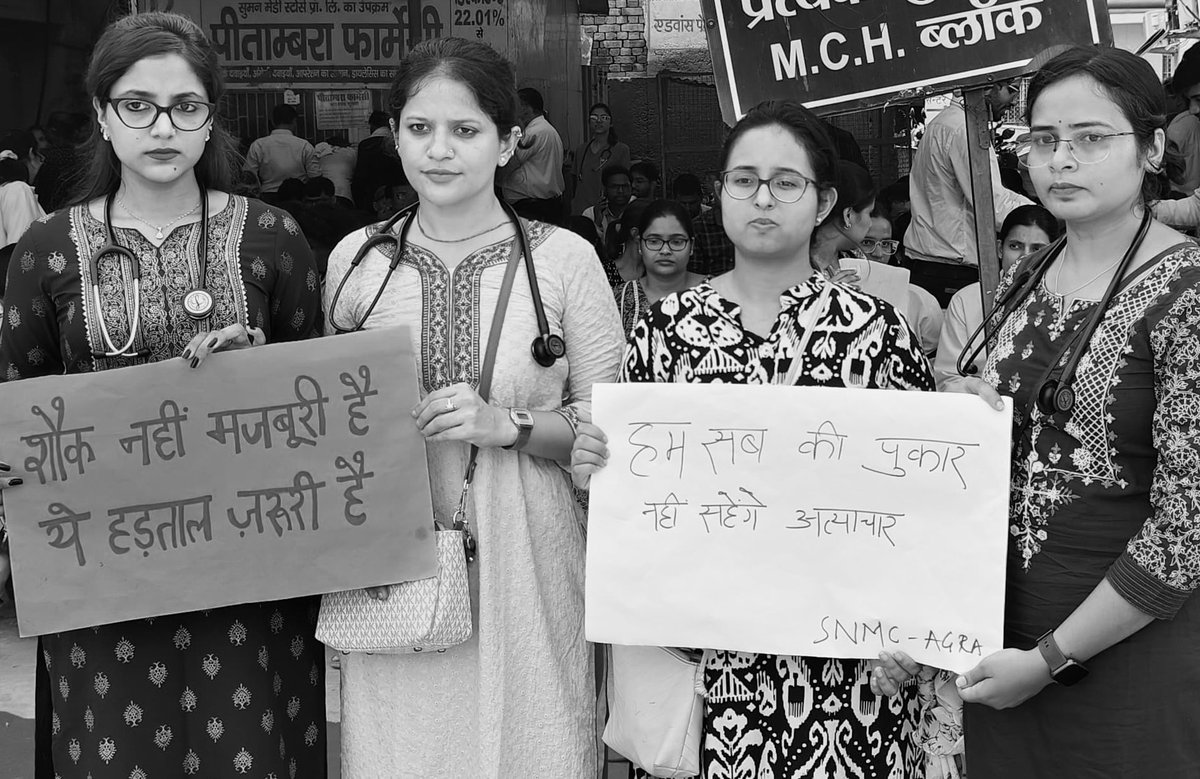 सुमन मेडी स्टोर्स प्रा. लि. का उपक्रम
पीताम्बरा फार्मेसी
22.01%
से
पीताम्बरा फार्मेसी
एडवांस
M.C.H. ब्लॉक
शौक नहीं मजबूरी है
ये हड़ताल ज़रूरी है
हम सब की पुकार
नहीं सहेंगे अत्याचार
SNMC-AGRA